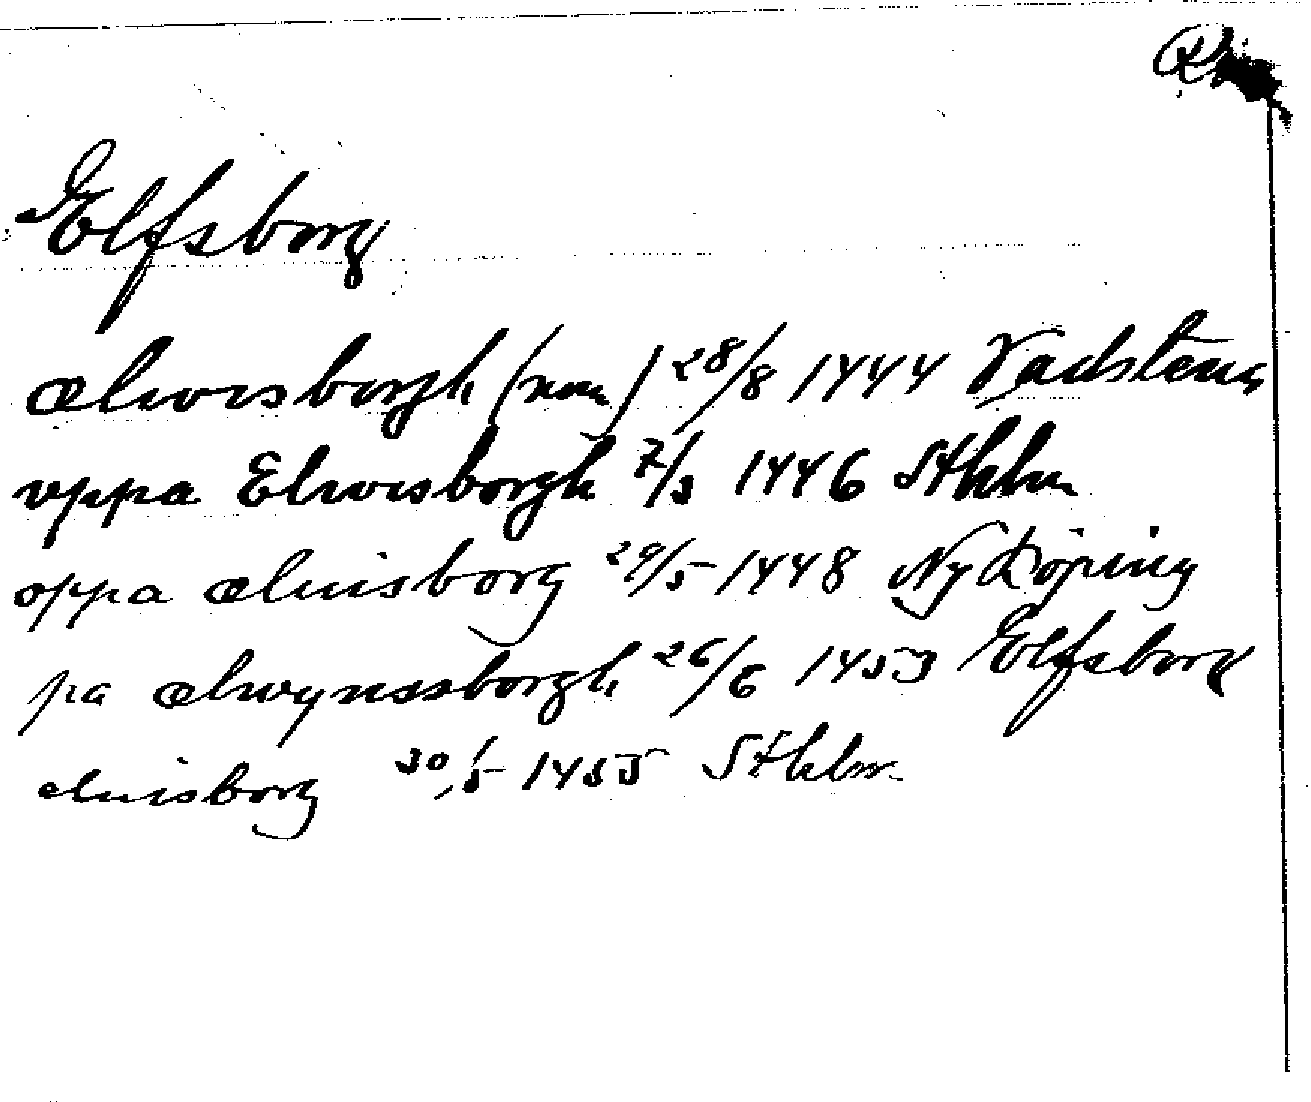 Elfsborg
ælwisborgh (nom) 28/8 1444 Vadstena
vppa Elwisborgh 7/3 1446 Sthlm
oppa æluisborg 29/5 1448 Nyköping
pa ælwynssborgh 26/6 1453 Elfsborg
æluisborg 30/5 1455 Sthlm